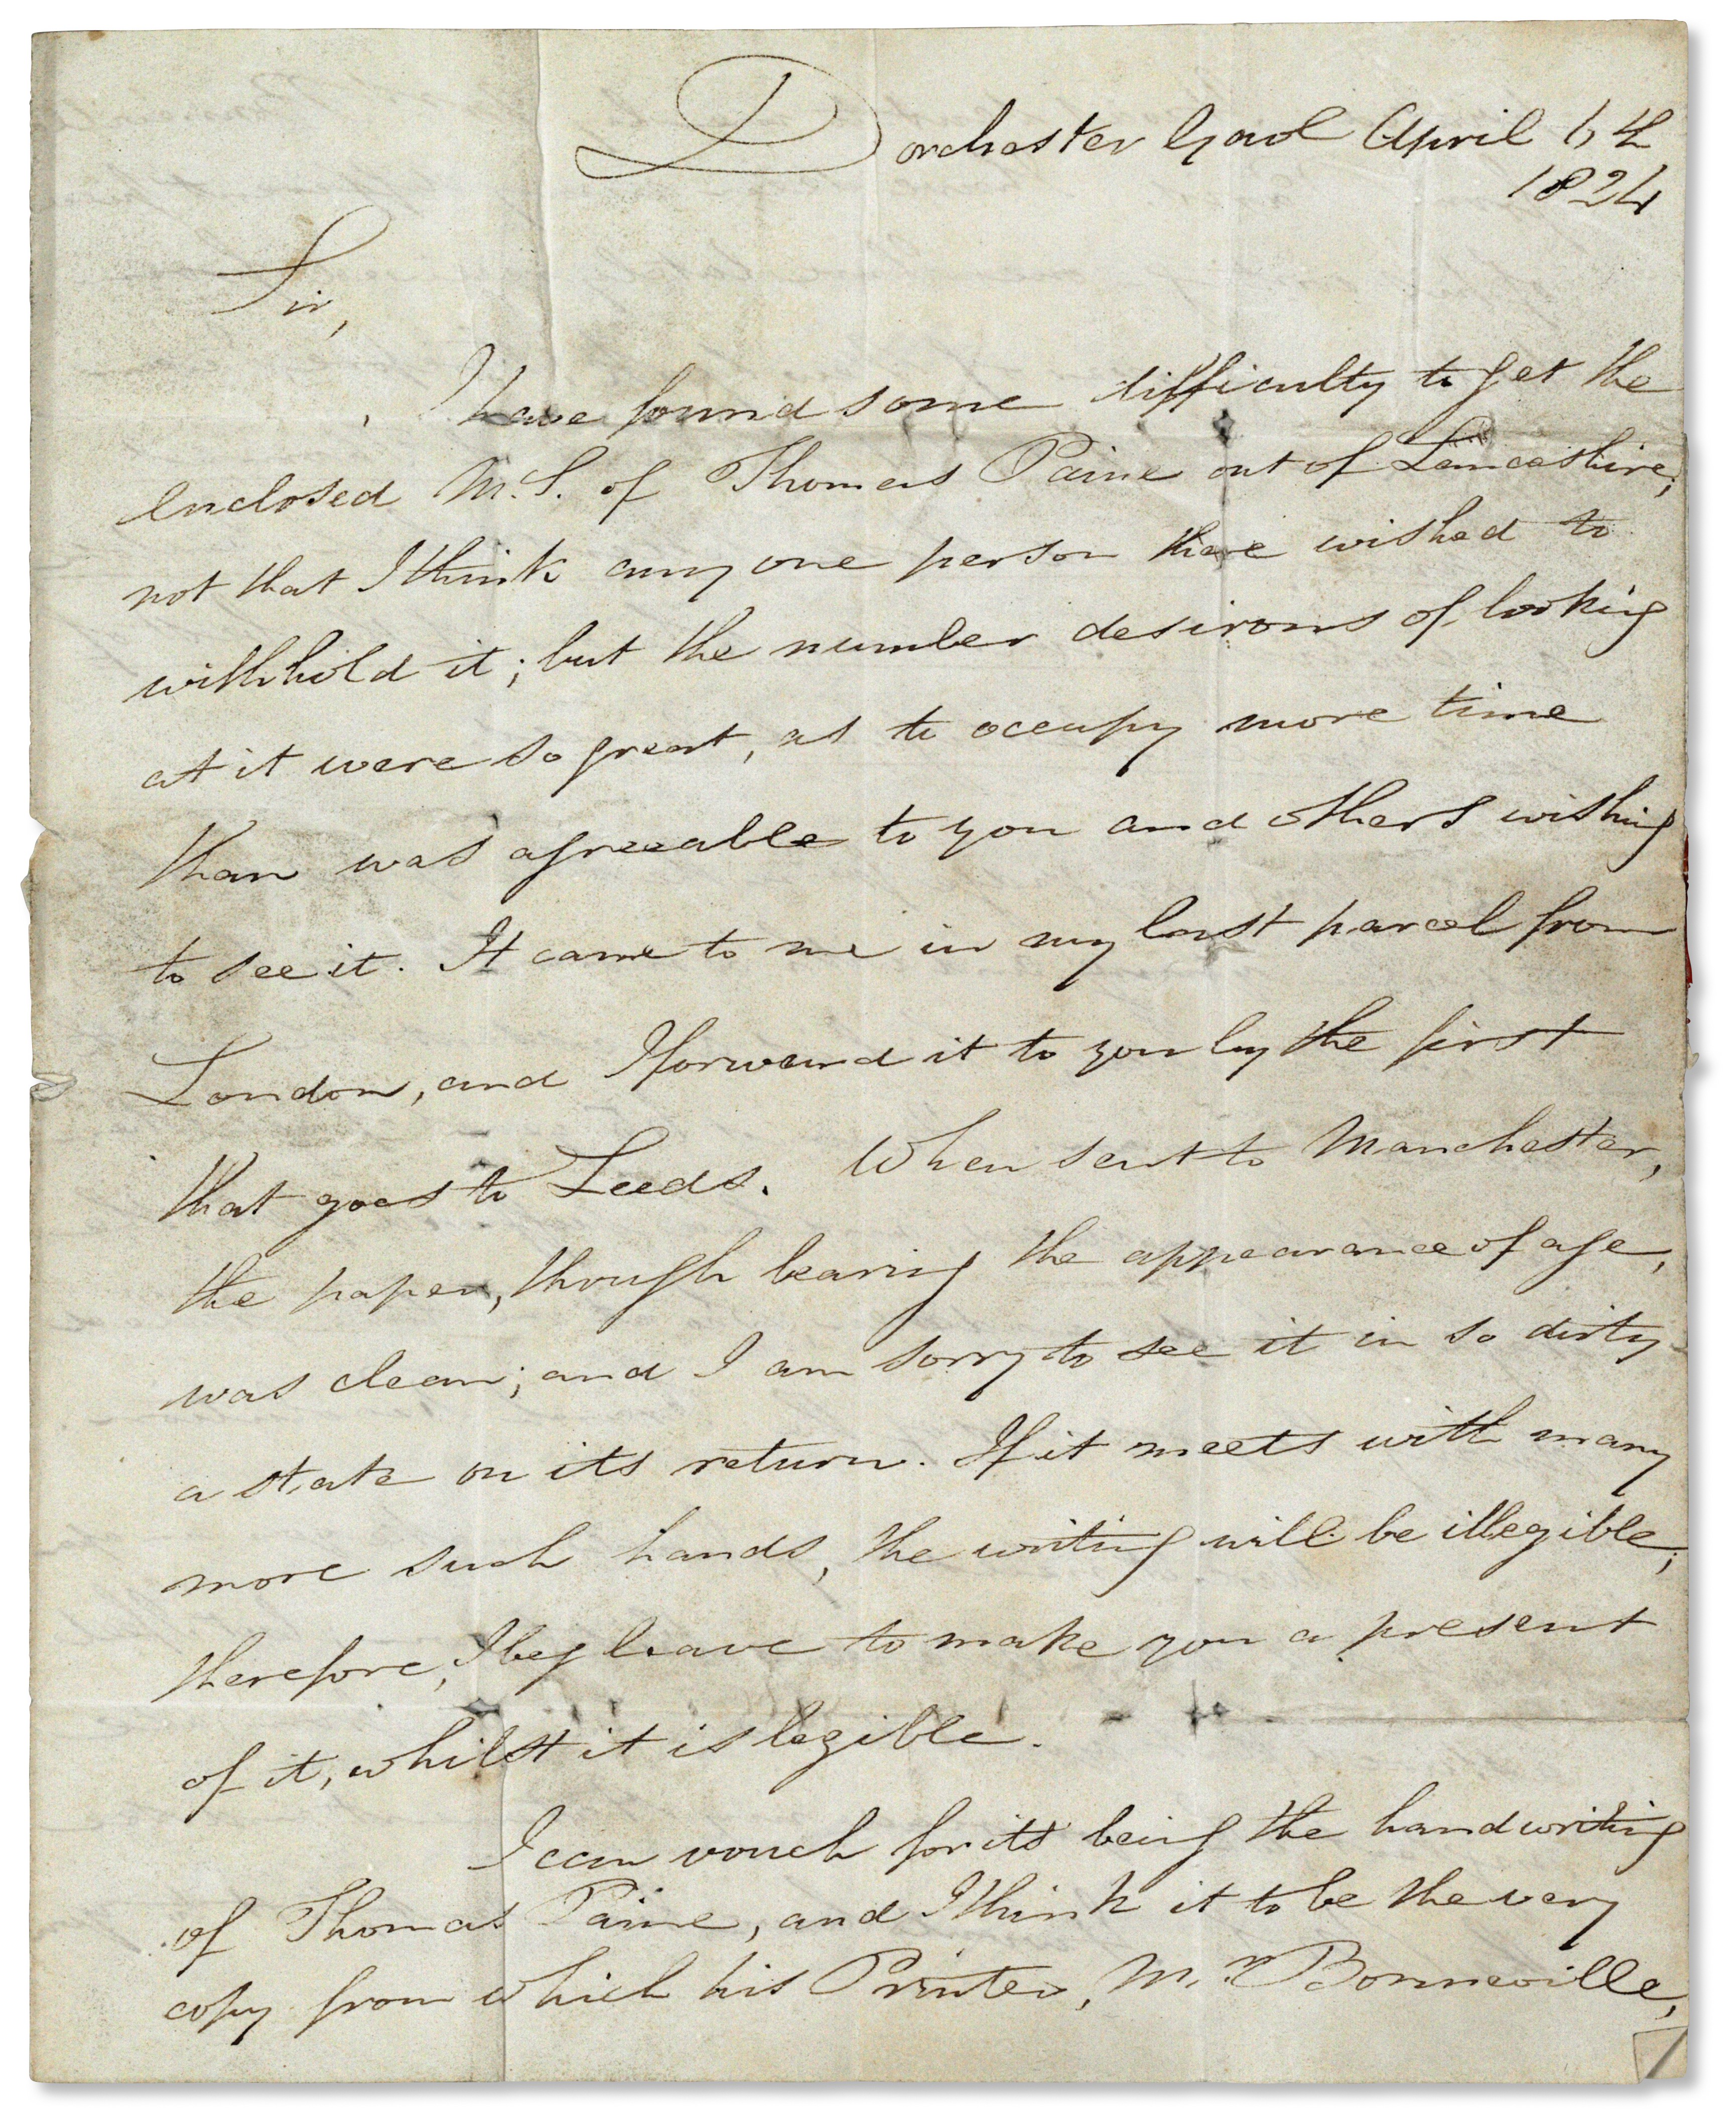 Dorchester Gaol April 6th
1824
Sir,
I have found some difficulty to get the
enclosed M.S. of Thomas Paine out of Lancashire;
not that I think any one person there wished to
withhold it; but the number desirous of looking
at it were so great, as to occupy more time
than was agreeable to you and others wishing
to see it. It came to me in my last parcel from
London, and I forward it to you by the first
that goes to Leeds. When sent to Manchester,
the paper, though bearing the appearance of age,
was clean; and I am sorry to see it in so dirty
a state on its return. If it meets with many
more such hands, the writing will be illegible;
therefore, I beg leave to make you a present
of it, whilst it is legible.
I can vouch for its being the handwriting
of Thomas Paine, and I think it to be the very
copy from which his Printer, Mr. Bonneville,